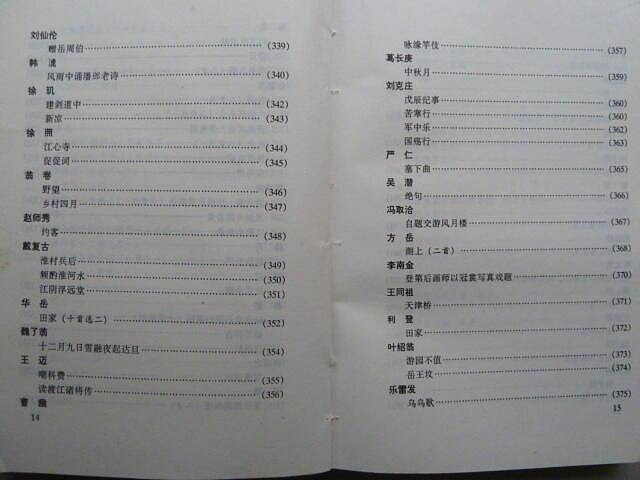 刘仙伦
赠岳周伯……(339)
韩淲
风雨中诵潘邠老诗……(340)
徐玑
建剑道中……(342)
新凉……(343)
徐照
江心寺……(344)
促促词……(345)
翁卷
野望……(346)
乡村四月……(347)
赵师秀
约客……(348)
戴复古
淮村兵后……(349)
频酌淮河水……(350)
江阴浮远堂……(351)
华岳
田家（十首选二）……(352)
魏了翁
十二月九日雪融夜起达旦……(354)
王迈
嘲科费……(355)
读渡江诸将传……(356)
曹豳
14
咏缘竿伎……(357)
葛长庚
中秋月……(359)
刘克庄
戊辰纪事……(360)
苦寒行……(360)
军中乐……(362)
国殇行……(363)
严仁
塞下曲……(365)
吴潜
绝句……(366)
冯取洽
自题交游风月楼……(367)
方岳
湖上（二首）……(368)
李南金
登第后画师以冠裳写真戏题……(370)
王同祖
天津桥……(371)
利登
田家……(372)
叶绍翁
游园不值……(374)
岳王坟……(374)
乐雷发
乌乌歌……(375)
15